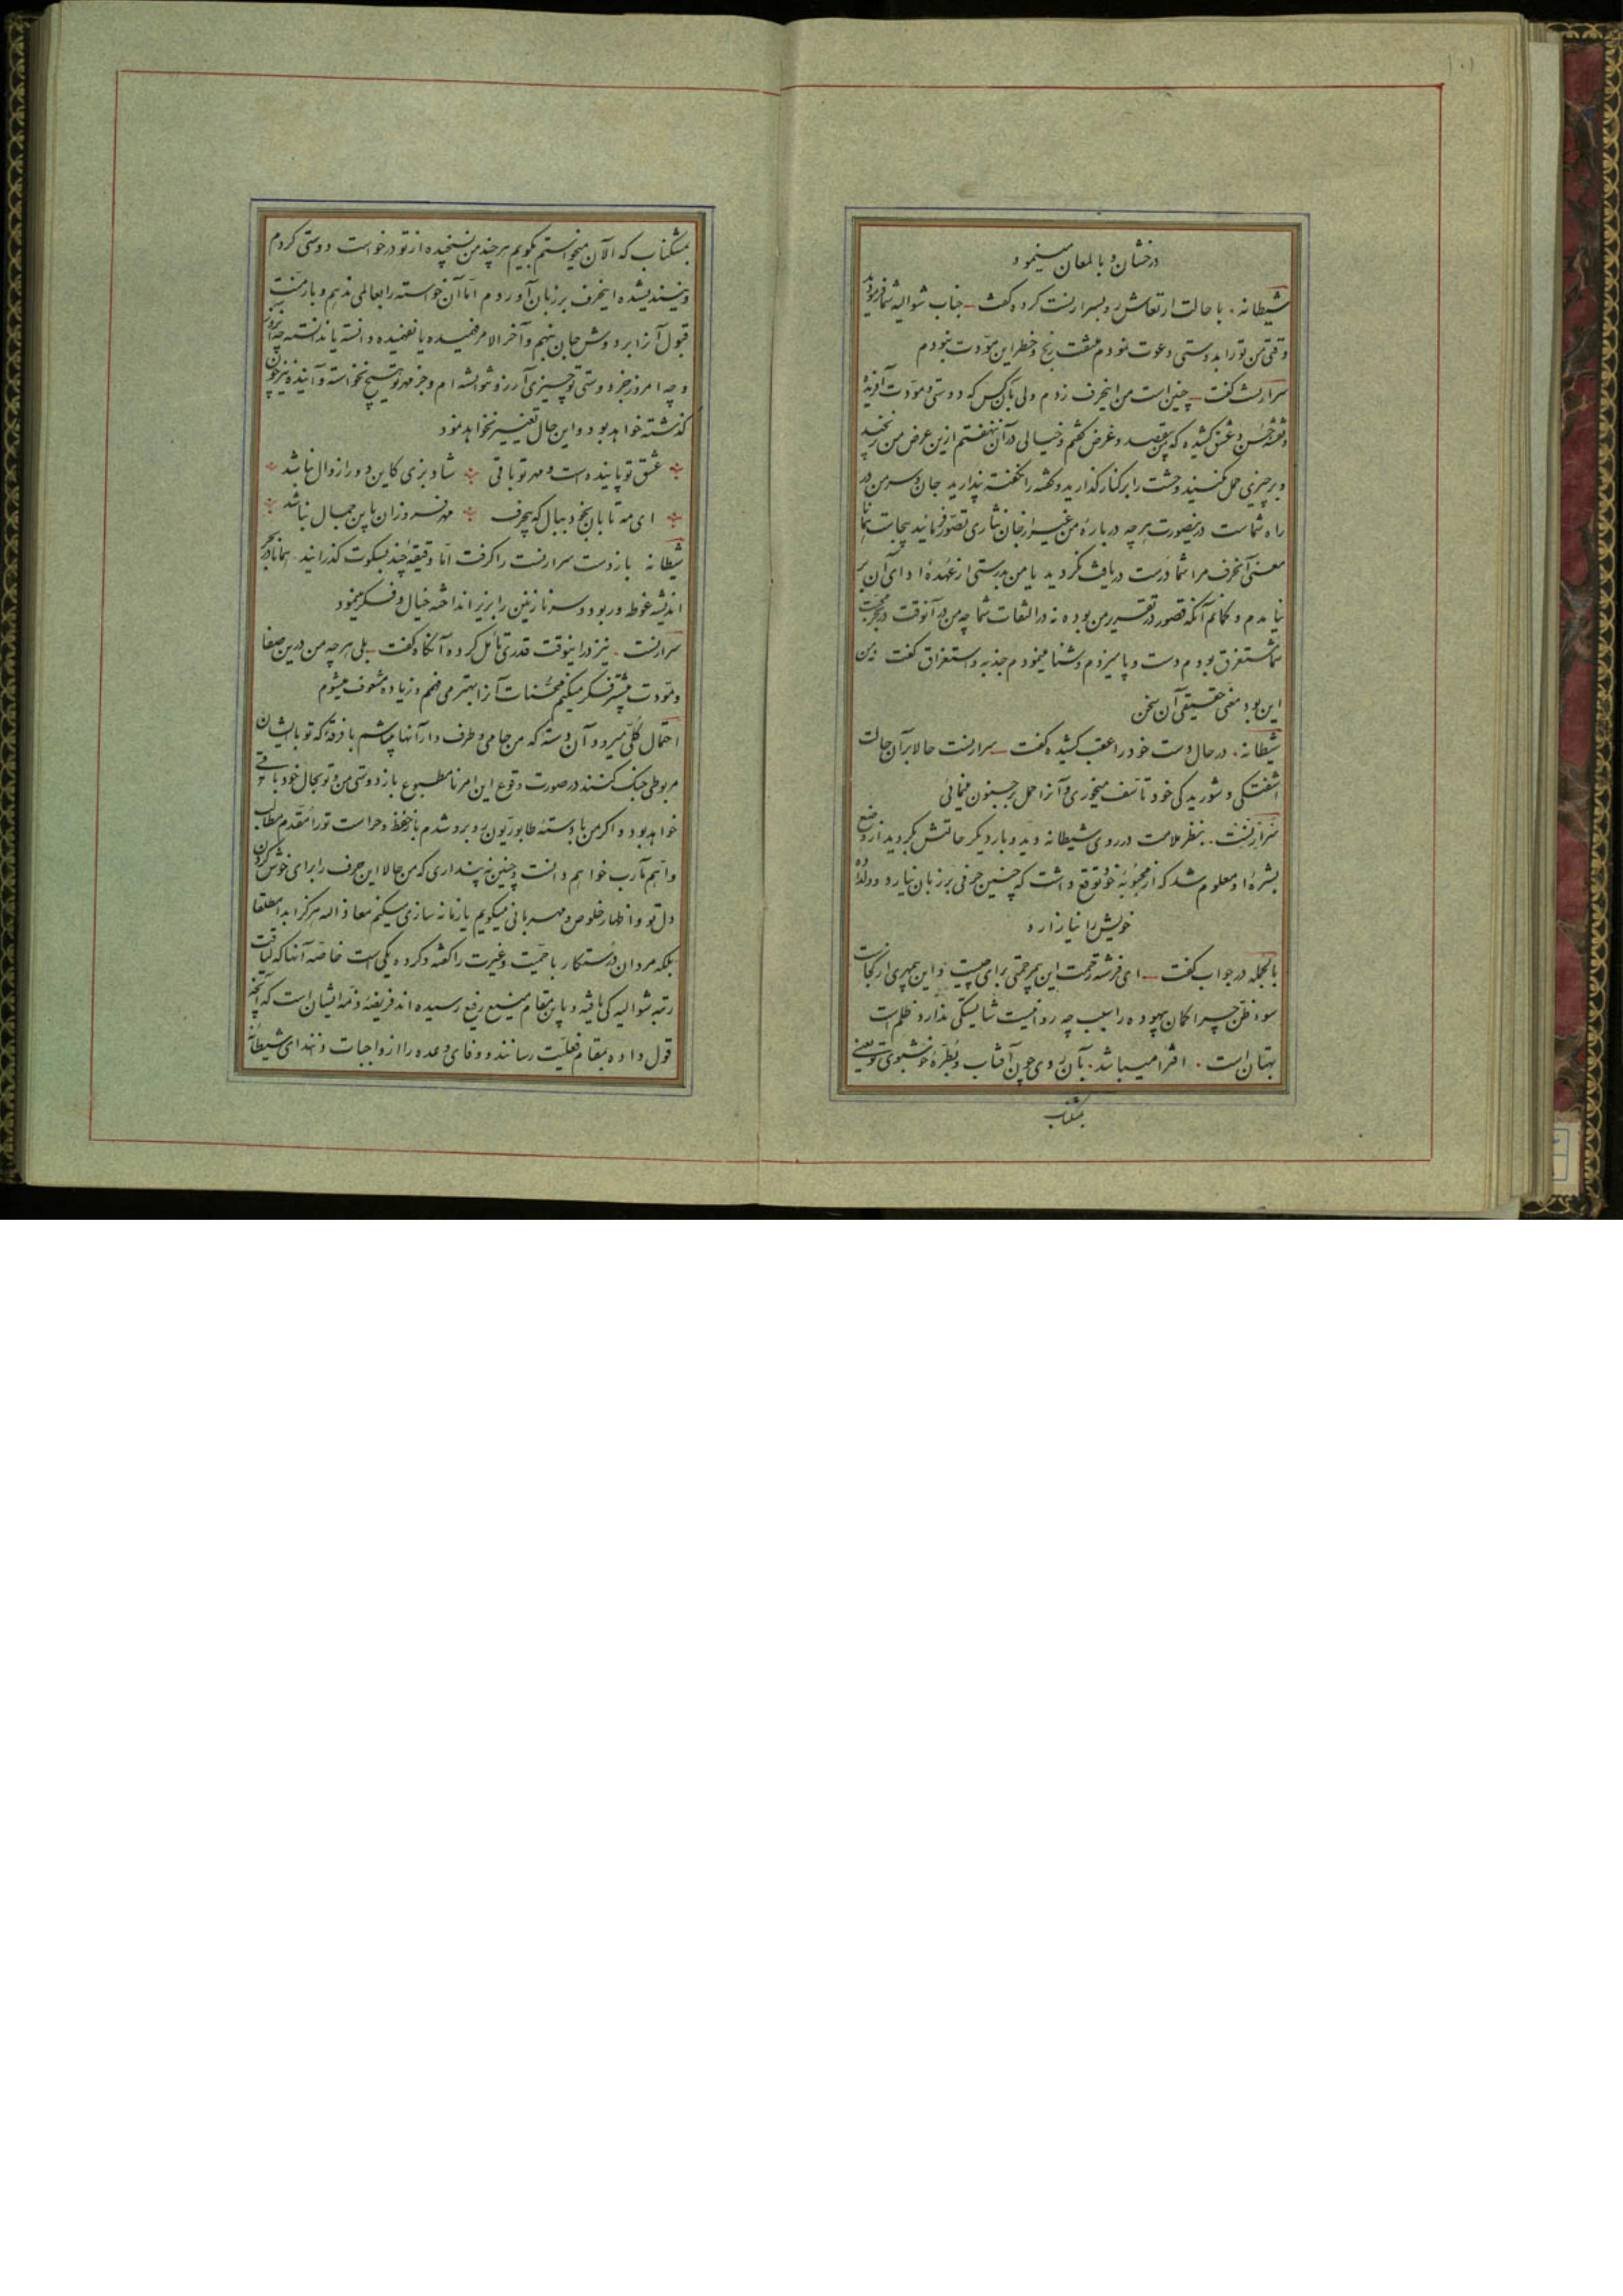 ۱۰۱
درخشان و با لمعان مینمود
شیطانه . با حالت ارتعاش رو بسرارنست کرده گفت ـ جناب شوالیه شما فرمودید
وقتی من تو را بدوستی دعوت نمودم ملتفت رنج و خطر این مودت نبودم
سرارنست گفت ـ چنین است من اینحرف زدم ولی بآن کس که دوستی و مودت آفریده
و نقشه حسن و عشق کشیده که بی قصد و غرض گفتم و خیالی در آن ننهفتم ازین عرض من نرنجید
و بر چیزی حمل نکنید وحشت را بر کنار گذارید و گفته را نگفته پندارید جان و سر من در
راه شماست در اینصورت هر چه در بارهٔ من غیر از جان نثاری تصور فرمائید بیجاست همانا
معنی آنحرف مرا شما درست دریافت نکردید یا من بدرستی از عهدهٔ ادای آن بر
نیامدم و گمانم آنکه قصور در تقریر من بوده نه در التفات شما چه من در آنوقت در بحر محبت
شما مستغرق بودم دست و پا میزدم و شنا مینمودم جذبه و استغراق گفت
این بود معنی حقیقی آن سخن
شیطانه . در حال دست خود را عقب کشیده گفت ـ سرارنست حالا بر آن حالت
آشفتگی و شوریدگی خود تأسف میخوری و آنرا حمل بر جنون مینمائی
سرارنست . بنظر ملامت در روی شیطانه دید و بار دیگر حالتش بگردید از وضع
بشرهٔ او معلوم شد که از محبوبهٔ خود توقع داشت که چنین حرفی بر زبان نیارد و دلدادهٔ
خویش را نیازارد
بالجمله در جواب گفت ـ ای فرشته رحمت این بیرحمتی برای چیست و این بیمهری از کجاست
سوء ظن چرا گمان بیهوده را سبب چه روا نیست شایستگی ندارد ظلم است
بهتان است . افترا میباشد . بآن روی چون آفتاب و بطرهٔ خوشبوی تو یعنی
بمشکناب
بمشکناب که الآن میخواستم بگویم هر چند من نسنجیده از تو درخواست دوستی کردم
و نیندیشده اینحرف بر زبان آوردم اما آن خواسته را بعالمی ندهم و بار منت
قبول آنرا بر دوش جان بنهم و آخر الامر فهمیده یا نفهمیده دانسته یا ندانسته چه آنروز
و چه امروز جز دوستی تو چیزی آرزو نشده ام و جز مهر تو هیچ نخواسته و آینده نیز چون
گذشته خواهد بود و این حال تغییر نخواهد نمود
عشق تو پاینده است و مهر تو باقی شاد بزی کاین دو را زوال نباشد
ای مه تابان بخ بخ و ببال که بیحرف مهر فروزان باین جمال نباشد
شیطانه باز دست سرارنست را گرفت اما دقیقه‌ٔ چند بسکوت گذرانید . همانا در بحر
اندیشه غوطه‌ور بود و سر نازنین را بزیر انداخته خیال و فکر مینمود
سرارنست . نیز در اینوقت قدری تأمل کرده آنگاه گفت ـ بلی هر چه من درین صفا
و مودت بیشتر فکر میکنم محسنات آنرا بهتر میفهم و زیاده مشعوف میشوم
احتمال کلی میرود آن دسته که من حامی و طرف دار آنها میباشم با فرقهٔ که تو با ایشان
مربوطی جنگ کنند در صورت وقوع این امر نامطبوع باز دوستی من و تو بحال خود باقی
خواهد بود و اگر من با دستهٔ طابوریون رو برو شدم باز حفظ و حراست تو را مقدم مطالب
و اهم مآرب خواهم دانست و چنین نه پنداری که من حالا این حرف را برای خوش کردن
دل تو و اظهار خلوص و مهربانی میگویم یا زمانه سازی میکنم معاذ الله هرگز ابدا مطلقا
بلکه مردان درستکار با حمیت و غیرت را گفته و کرده یکی است خاصه آنها که لیاقت
رتبه شوالیه‌گی یافته و باین مقام منیع رفیع رسیده‌اند فریضهٔ ذمهٔ ایشان است که آنچه
قول داده بمقام فعلیت رسانند و وفای وعده را از واجبات دانند ای شیطانه